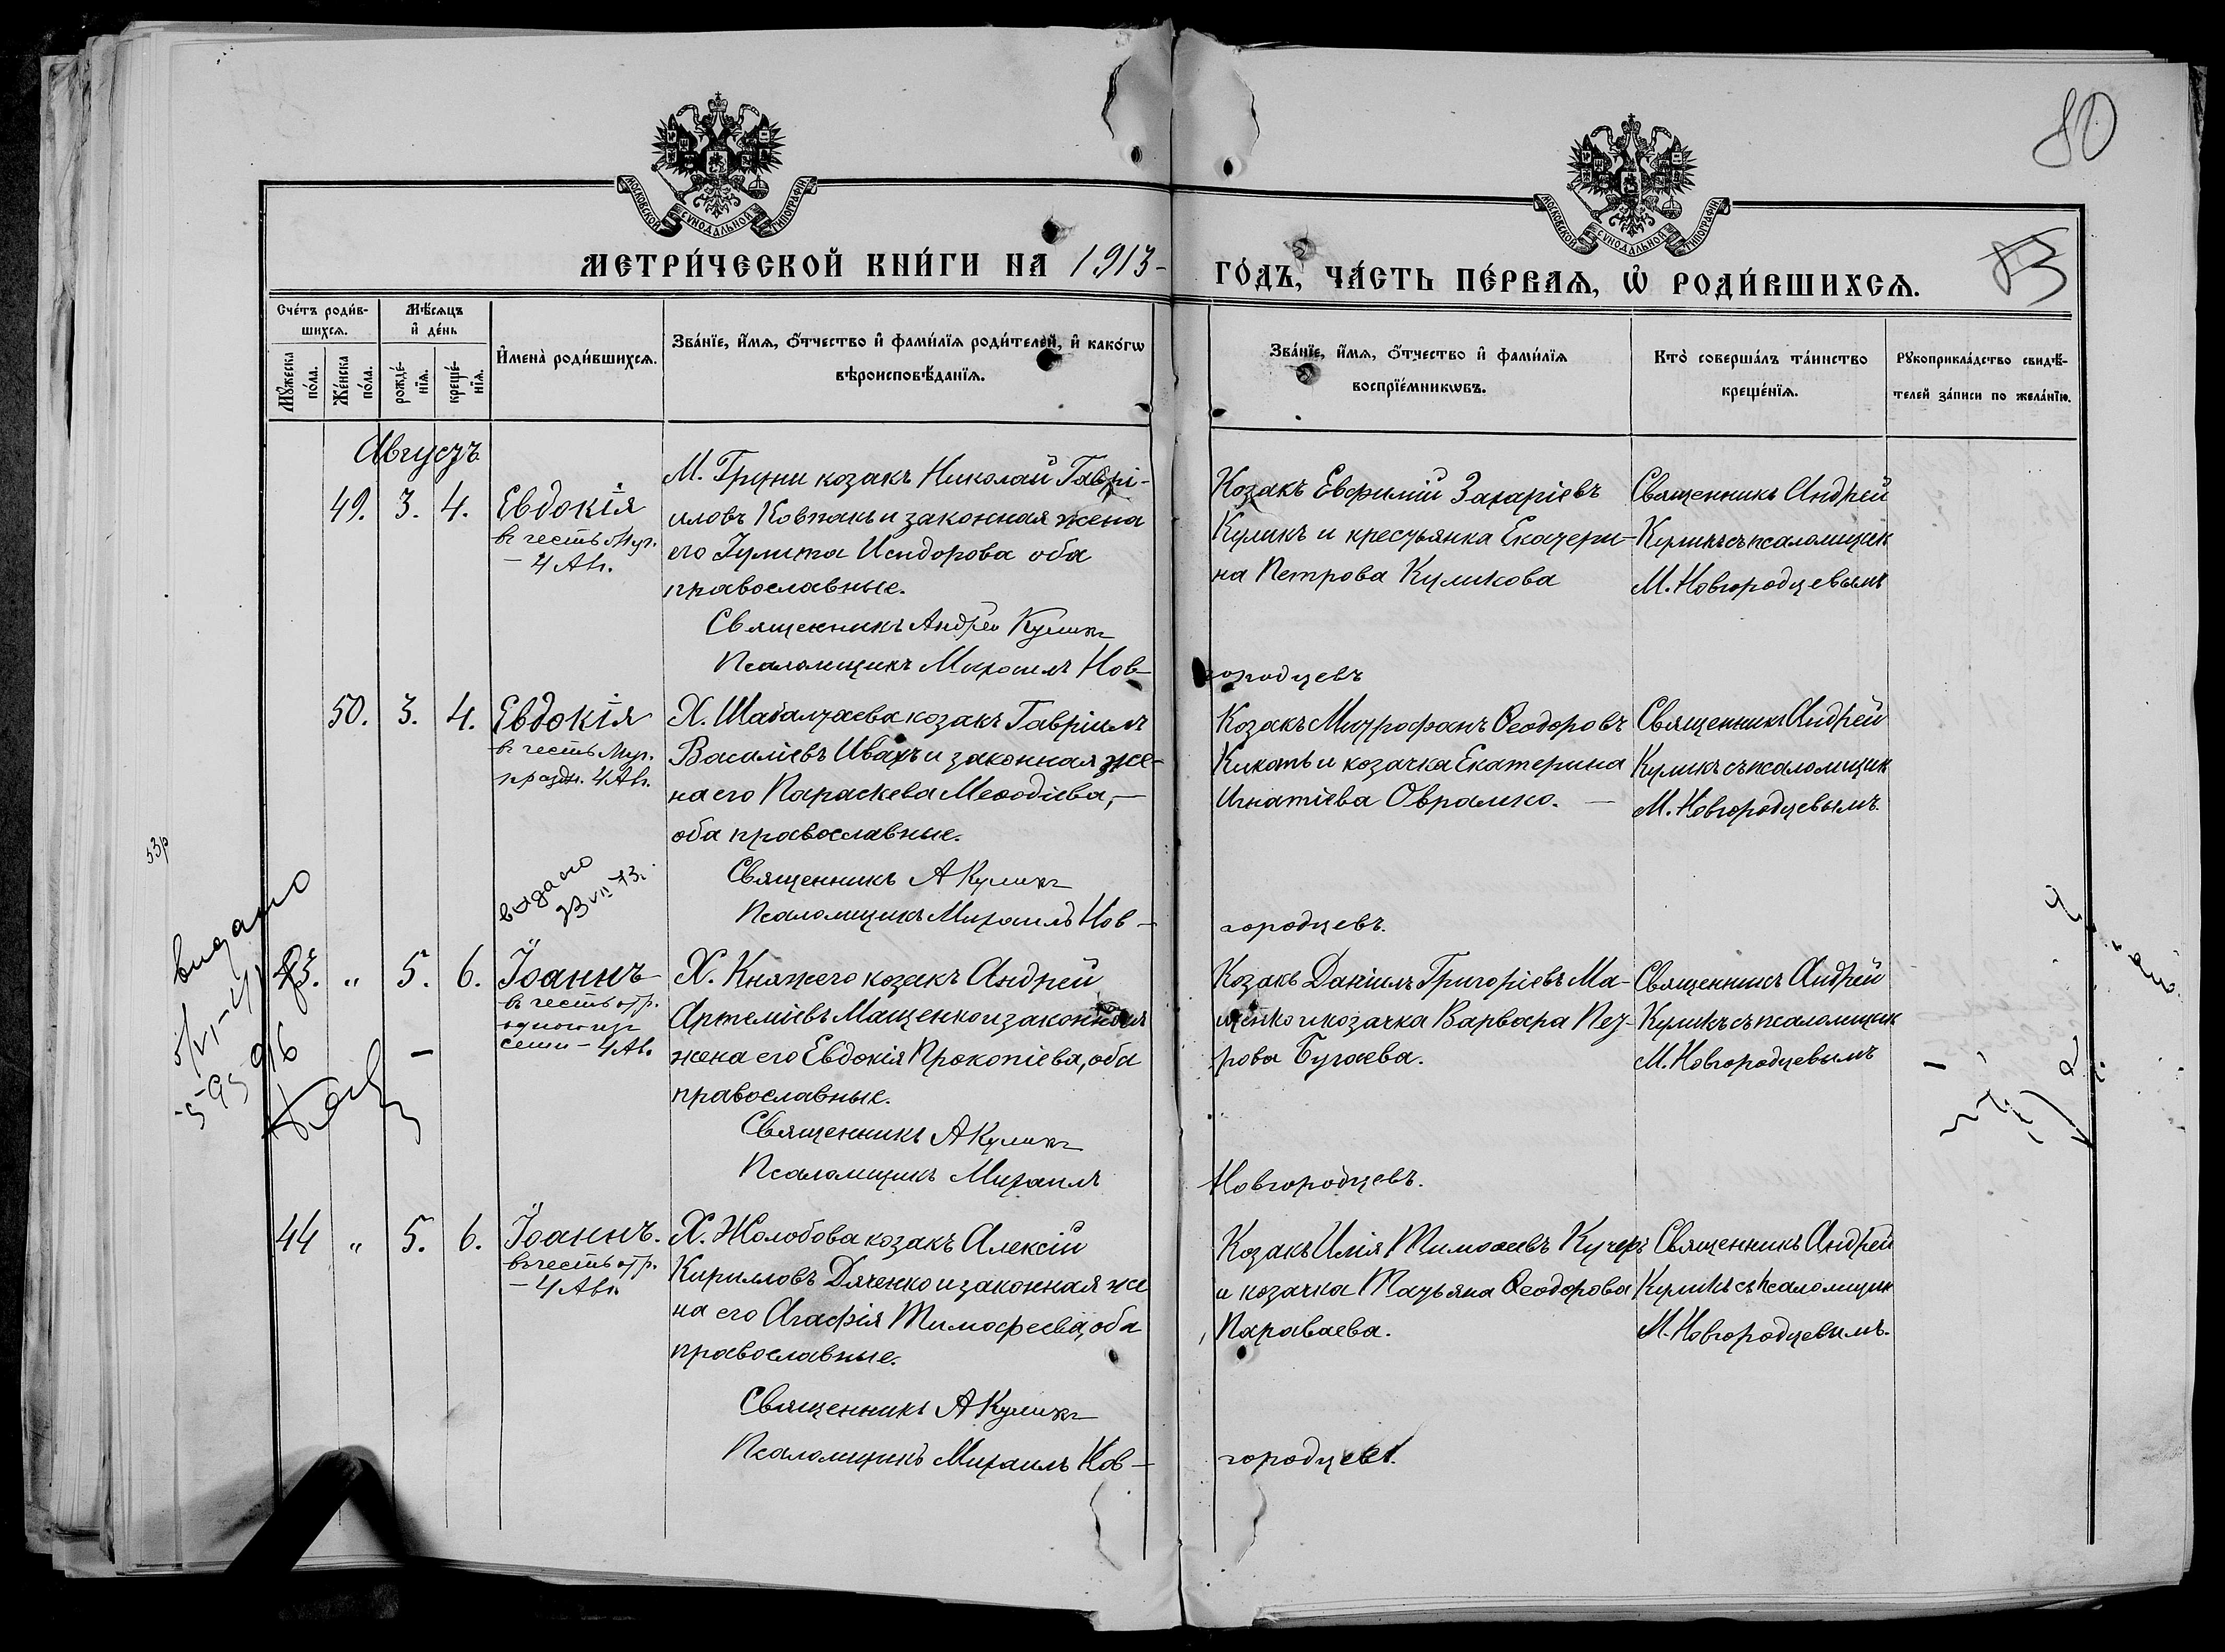 80
МОСКОВСКОЙ СУНОДАЛЬНОЙ ТИПОГРАФІИ
МОСКОВСКОЙ СУНОДАЛЬНОЙ ТИПОГРАФІИ
МЕТРИ́ЧЕСКОЙ КНИ́ГИ НА 1913-
ГО́ДЪ, ЧА́СТЬ ПЕ́РВАѦ, Ѡ РОДИ́ВШИХСѦ.
Сче́тъ роди́в-
шихсѧ.
Мꙋ́жеска
по́ла.
Же́нска
по́ла.
Мѣ́сѧцъ
и де́нь
рожде́-
нїѧ.
креще́-
нїѧ.
Имена̀ роди́вшихсѧ.
Зва́нїе, и́мѧ, ѻ́тчество и фами́лїѧ роди́телей, и како́гѡ
вѣроисповѣ́данїѧ.
Зва́нїе, и́мѧ, ѻ́тчество и фами́лїѧ
воспрїе́мникѡвъ.
Кто̀ соверша́лъ та́инство
креще́нїѧ.
Рꙋкоприкла́дство свидѣ́-
телей за́писи по жела́нїю.
Августъ
49. 3. 4.
Евдокія
въ честь муч.
- 4 Авг.
М. Груни козакъ Николай Гаврі-
иловъ Ковпакъ и законная жена
его Іулита Исидорова оба
православные.
Священникъ Андрей Куликъ
Псаломщикъ Михаилъ Нов-
городцевъ
Козакъ Евфимій Захаріевъ
Куликъ и крестьянка Екатери-
на Петрова Куликова
Священникъ Андрей
Куликъ съ псаломщик
М. Новгородцевымъ
50. 3. 4.
Евдокія
въ честь муч.
праздн. 4 Авг.
Х. Шабалтаева козакъ Гавріилъ
Василіевъ Ивахъ и законная же-
на его Параскева Меѳодіева, —
оба православные.
Священникъ А Куликъ
Псаломщикъ Михаилъ Нов-
городцевъ.
Козакъ Митрофанъ Ѳеодоровъ
Кикоть и козачка Екатерина
Игнатіева Оврамко. —
Священникъ Андрей
Куликъ съ псаломщик
М. Новгородцевымъ.
выдано
видано
„ 5. 6.
Іоаннъ
въ честь отр.
одного изъ
семи - 4 Ав.
Х. Княжего козакъ Андрей
Артеміевъ Мащенко и законная
жена его Евдокія Прокопіева, оба
православные.
Священникъ А Куликъ
Псаломщикъ Михаилъ
Новгородцевъ.
Козакъ Даніилъ Григоріевъ Ма-
щенко и козачка Варвара Пет-
рова Бугаева.
Священникъ Андрей
Куликъ съ псаломщик
М. Новгородцевымъ
44 „ 5. 6.
Іоаннъ.
въ честь отр.
- 4 Авг.
Х. Жолобова козакъ Алексій
Кирилловъ Дяченко и законная же
на его Агафія Тимофеева, оба
православные.
Священникъ А Куликъ
Псаломщикъ Михаилъ Нов-
городцевъ.
Козакъ Илія Тимоѳеевъ Кучеръ
и козачка Татьяна Ѳеодорова
Параваева.
Священникъ Андрей
Куликъ съ псаломщик
М. Новгородцевимъ.